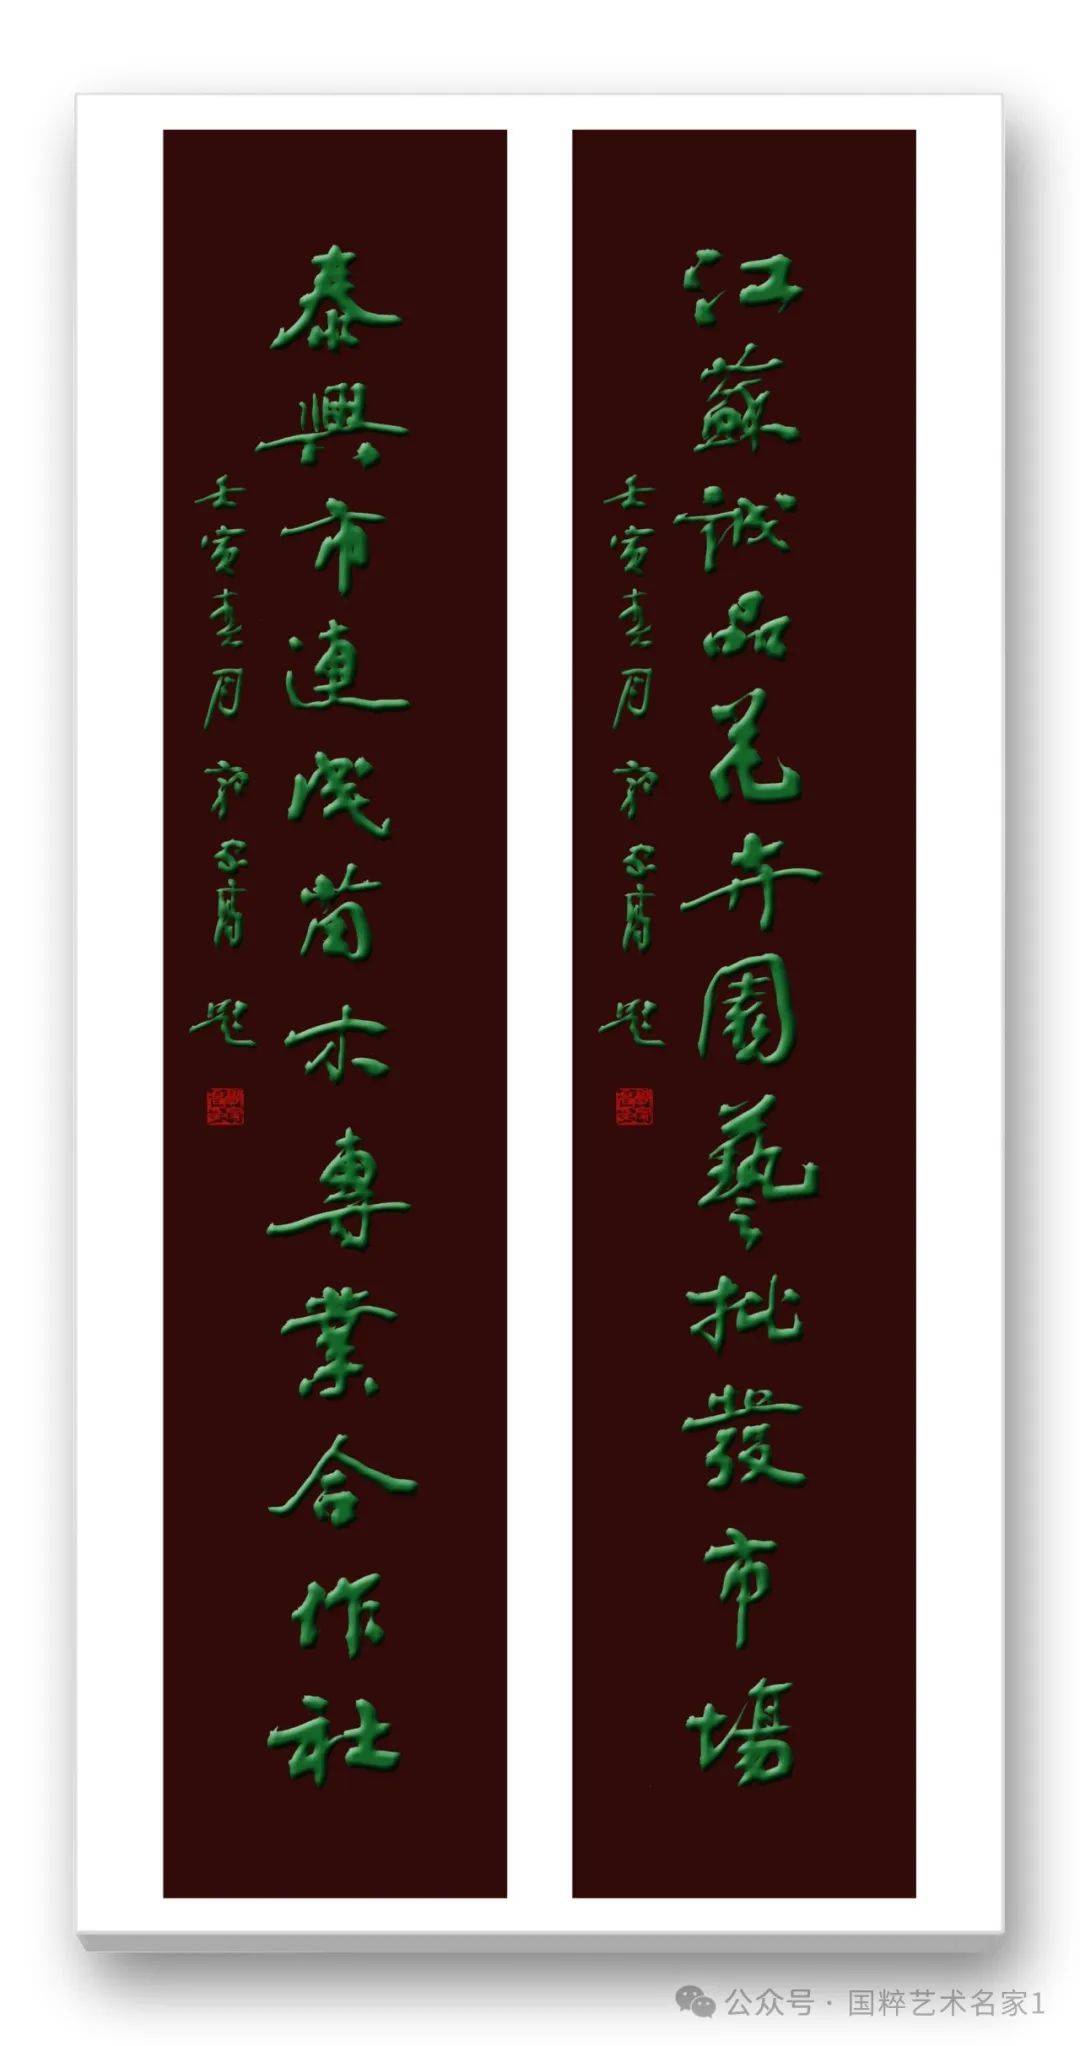 江蘇誠品花卉園藝批發市場
壬寅春月 郭家 題
泰興市連成苗木專業合作社
壬寅春月 郭家 題
公众号 · 国粹艺术名家1